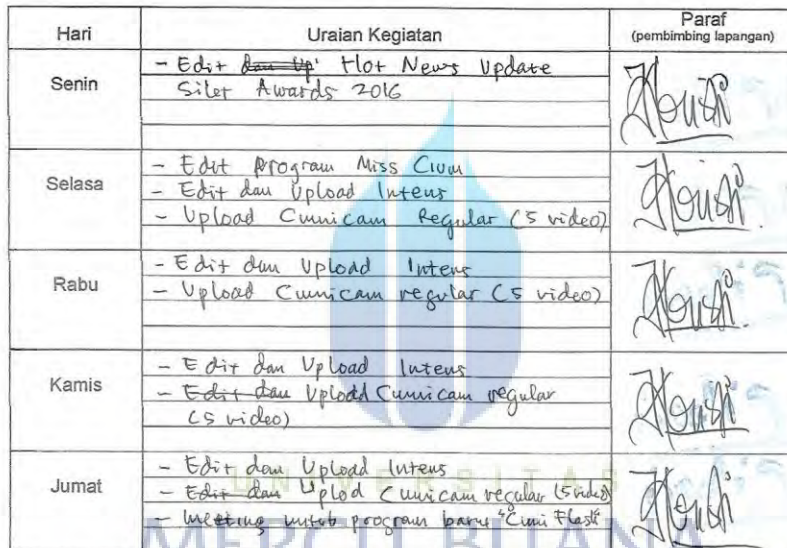 Hari Uraian Kegiatan Paraf
(pembimbing lapangan)
Senin
- Edit dan Up Hot News Update
Silet Awards 2016
Selasa
- Edit Program Miss Cium
- Edit dan Upload Intens
- Upload Cumicam Regular (5 video)
Rabu
- Edit dan Upload Intens
- Upload Cumicam regular (5 video)
Kamis
- Edit dan Upload Intens
- Edit dan Uplodd Cumicam regular
(5 video)
Jumat
- Edit dan Upload Intens
- Edit dan Uplod Cumicam regular (5 video)
- Meeting untuk program baru "Cumi Flash"
UNIVERSITAS
MERCU BUANA